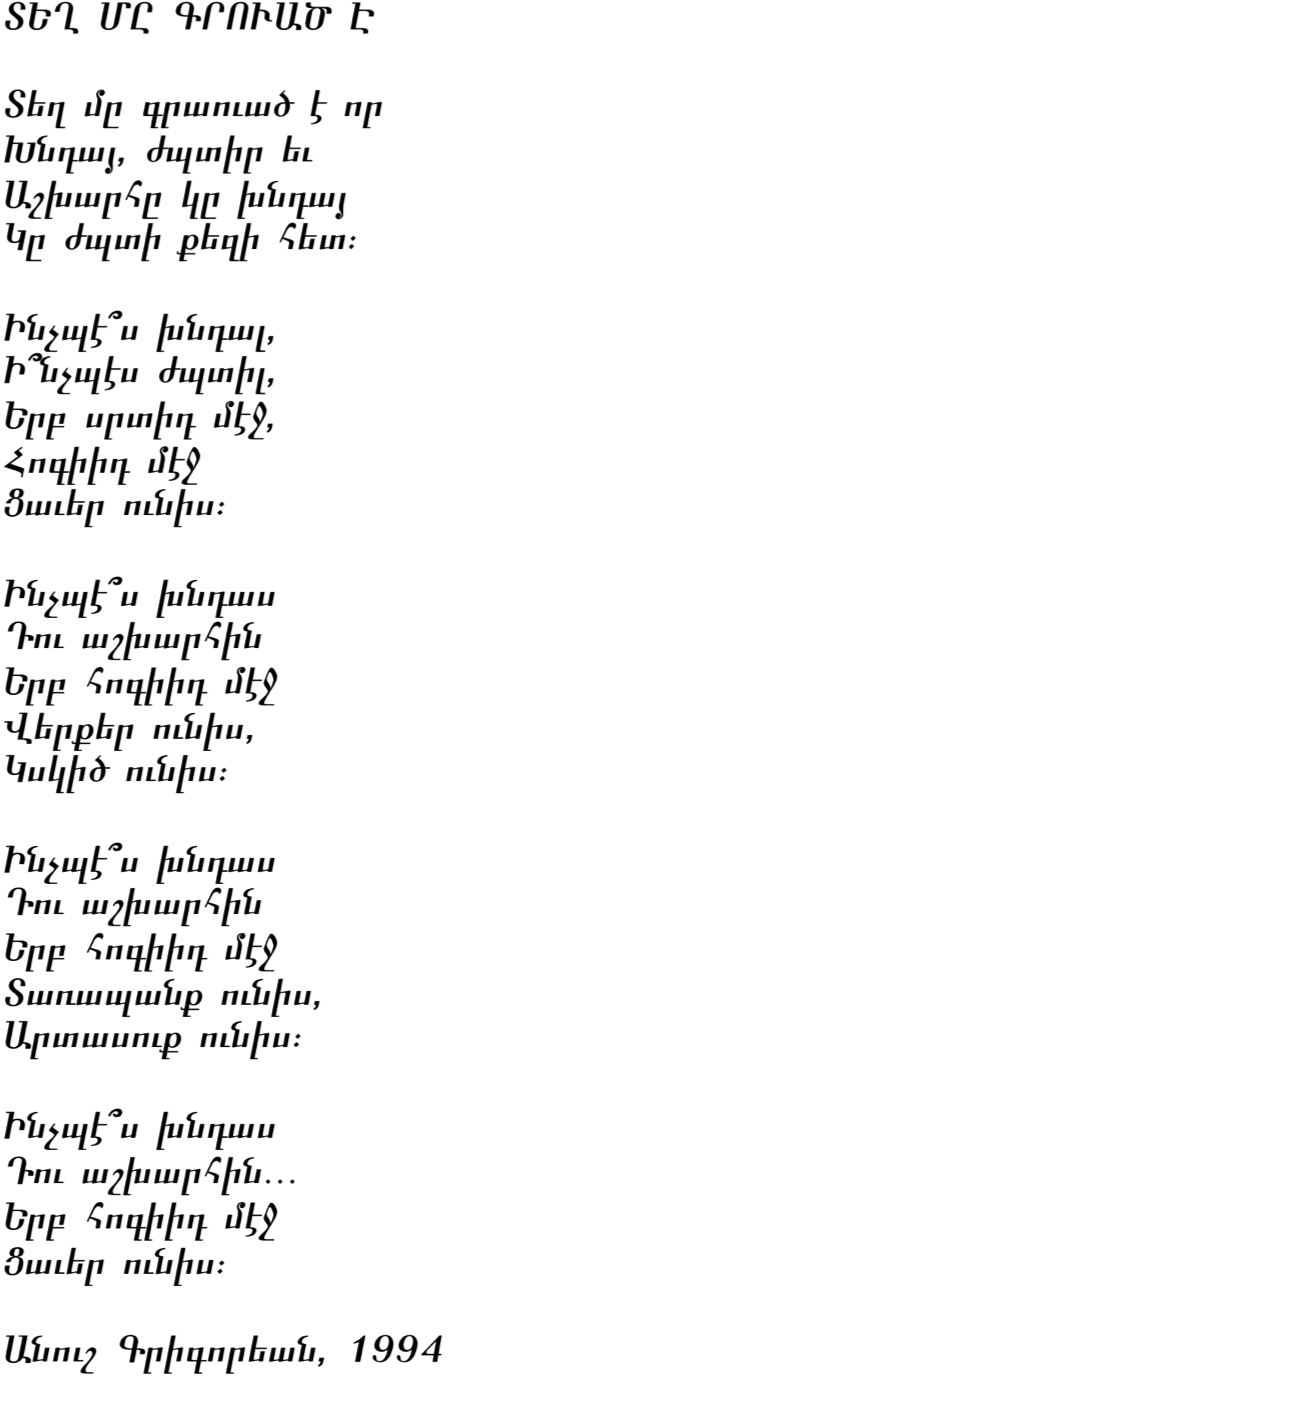 ՏԵՂ ՄԸ ԳՐՈՒԱԾ Է
Տեղ մը գրաուած է որ
Խնդայ, ժպտիր եւ
Աշխարհը կը խնդայ
Կը ժպտի քեզի հետ։
Ինչպէ՞ս խնդալ,
Ի՞նչպէս ժպտիլ,
Երբ սրտիդ մէջ,
Հոգիիդ մէջ
Ցաւեր ունիս։
Ինչպէ՞ս խնդաս
Դու աշխարհին
Երբ հոգիիդ մէջ
Վերքեր ունիս,
Կսկիծ ունիս։
Ինչպէ՞ս խնդաս
Դու աշխարհին
Երբ հոգիիդ մէջ
Տառապանք ունիս,
Արտասուք ունիս։
Ինչպէ՞ս խնդաս
Դու աշխարհին…
Երբ հոգիիդ մէջ
Ցաւեր ունիս։
Անուշ Գրիգորեան, 1994